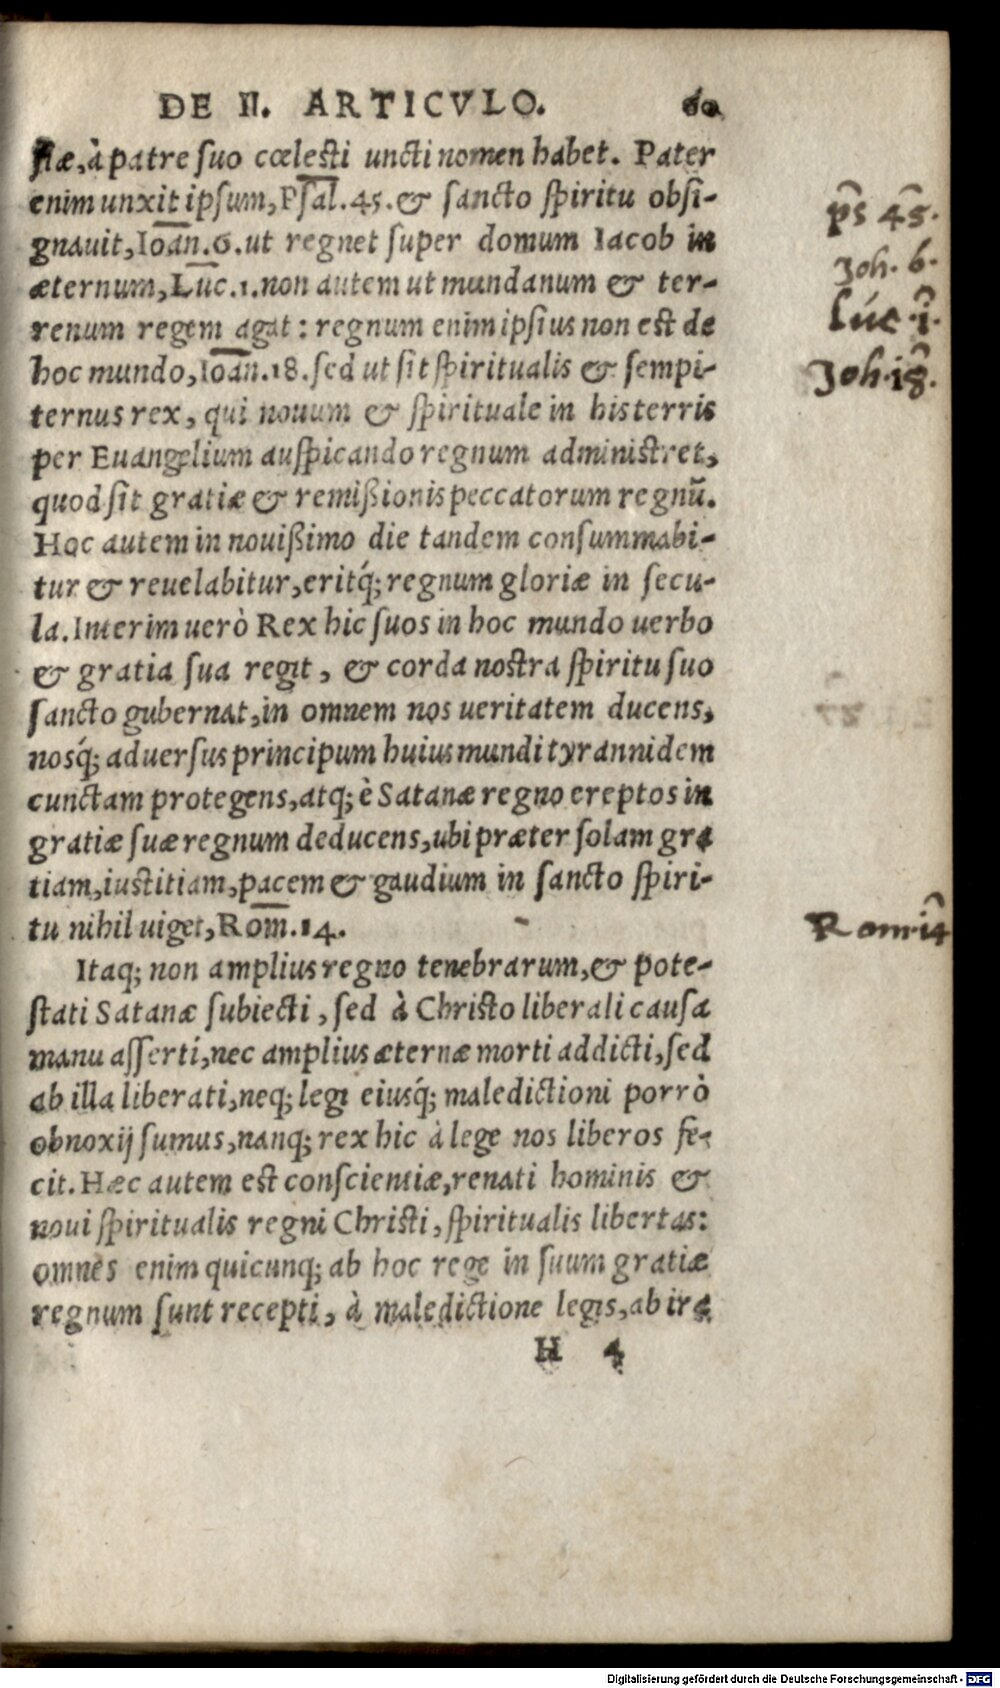 DE II. ARTICVLO. 60
næ, à patre suo cœlesti uncti nomen habet. Pater
enim unxit ipsum, Psal.45. & sancto spiritu obsi-
gnauit, Ioan.6. ut regnet super domum Iacob in
æternum, Luc.1. non autem ut mundanum & ter-
renum regem agat: regnum enim ipsius non est de
hoc mundo, Ioan.18. sed ut sit spiritualis & sempi-
ternus rex, qui nouum & spirituale in his terris
per Euangelium auspicando regnum administret,
quod sit gratiæ & remißionis peccatorum regnũ.
Hoc autem in nouißimo die tandem consummabi-
tur & reuelabitur, eritq́; regnum gloriæ in secu-
la. Interim uerò Rex hic suos in hoc mundo uerbo
& gratia sua regit, & corda nostra spiritu suo
sancto gubernat, in omnem nos ueritatem ducens,
nosq́; aduersus principum huius mundi tyrannidem
cunctam protegens, atq; è Satanæ regno ereptos in
gratiæ suæ regnum deducens, ubi præter solam gra
tiam, iustitiam, pacem & gaudium in sancto spiri-
tu nihil uiget, Rom.14.
Itaq; non amplius regno tenebrarum, & pote-
stati Satanæ subiecti, sed à Christo liberali causa
manu asserti, nec amplius æternæ morti addicti, sed
ab illa liberati, neq; legi eiusq́; maledictioni porrò
obnoxij sumus, nanq; rex hic à lege nos liberos fe-
cit. Hæc autem est conscientiæ, renati hominis &
noui spiritualis regni Christi, spiritualis libertas:
omnes enim quicunq; ab hoc rege in suum gratiæ
regnum sunt recepti, à maledictione legis, ab ira
H 4
ps 45.
Joh. 6.
Luc. i.
Joh. i8.
Rom. i4
Digitalisierung gefördert durch die Deutsche Forschungsgemeinschaft - DFG